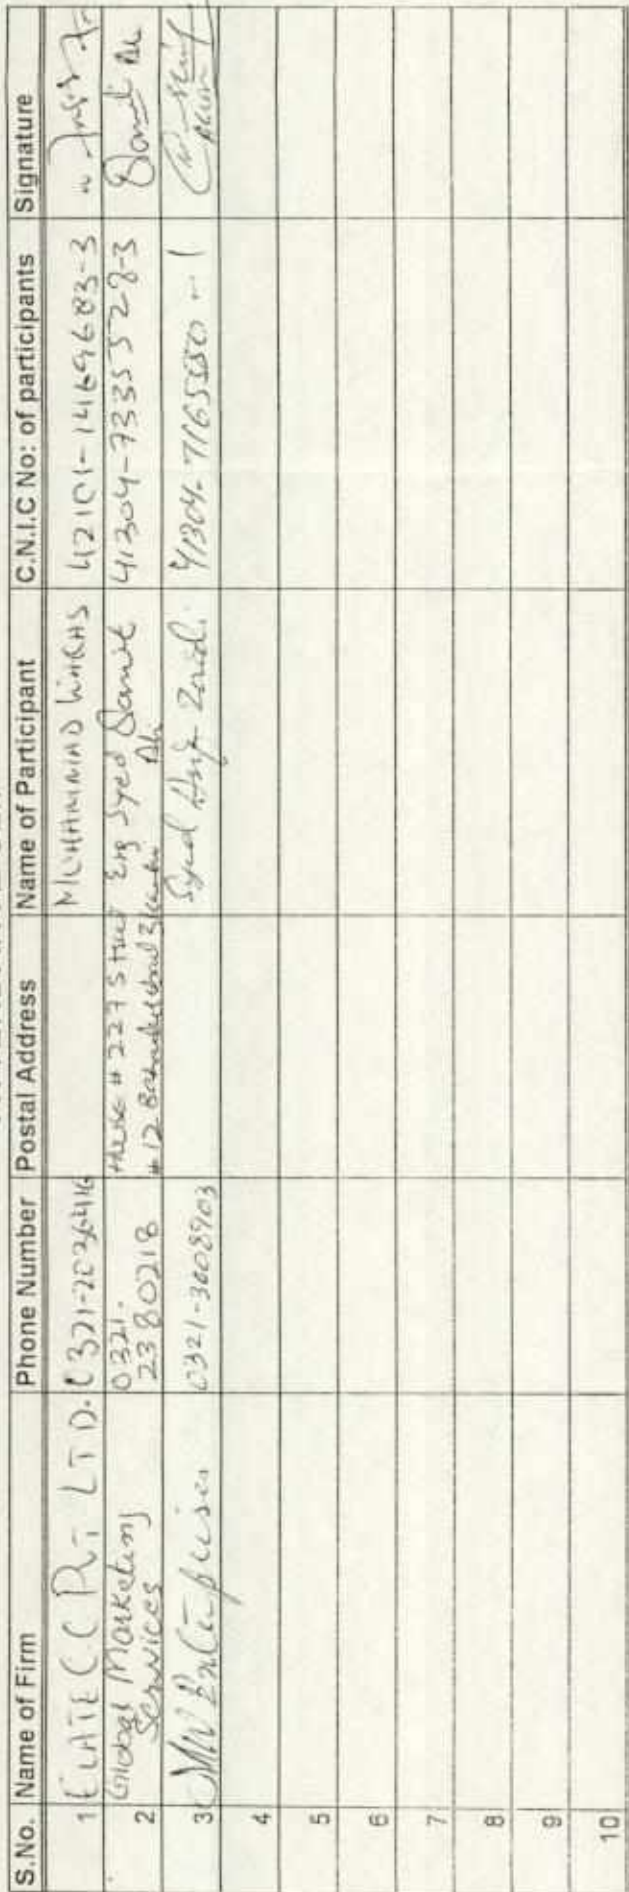 S.No. Name of Firm Phone Number Postal Address Name of Participant C.N.I.C No: of participants Signature
1 ELATECC PVT LTD. 0321-2036416 MUHAMMAD WAQAS 42101-1469683-3
2 Global Marketing Services 0321-2380218 House # 227 Street # 12 Eng Syed Danish Ali 41304-7335527-3
3 MW Enterprises 0321-3608903 Syed Asif Zaidi 41304-7165550-1
4
5
6
7
8
9
10